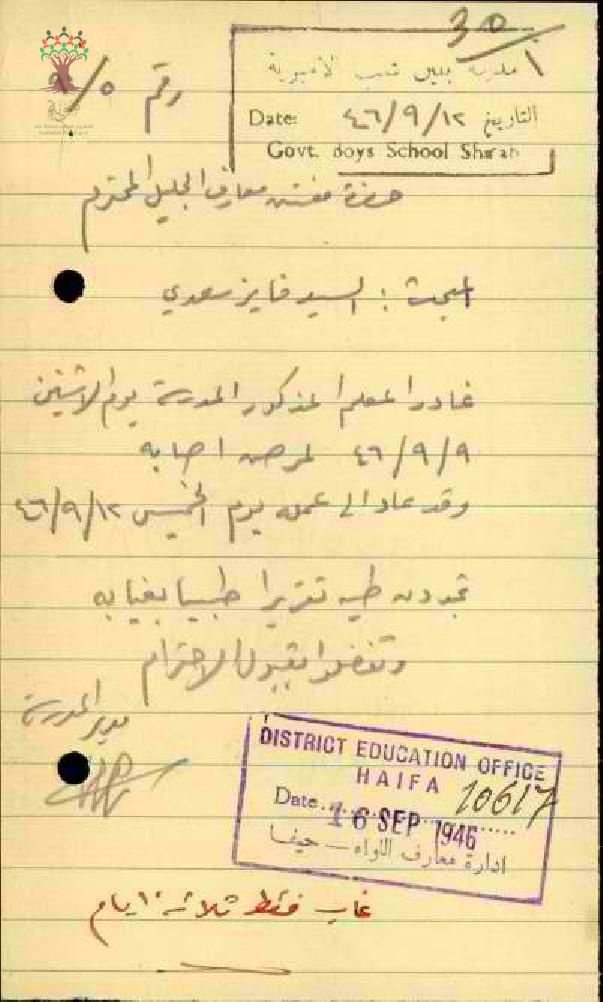 30
1
مدرسة بنين شعب الاميرية
رقم ٩/٥
Date: ٤٦/٩/١٢ التاريخ
Govt. Boys School Sha'ab
حضرة مفتش معارف الجليل المحترم
المبحث : السيد فايز سعدي
غادر المعلم المذكور المدرسة يوم الاثنين
٤٦/٩/٩ لمرض اصابه
وقد عاد الى عمله يوم الخميس ٤٦/٩/١٢
تجدون طيه تقريرا طبيا بغيابه
وتفضلوا بقبول الاحترام
مدير المدرسة
DISTRICT EDUCATION OFFICE
HAIFA
10617
Date 16 SEP 1946
ادارة معارف اللواء - حيفا
غاب فقط ثلاثة ايام